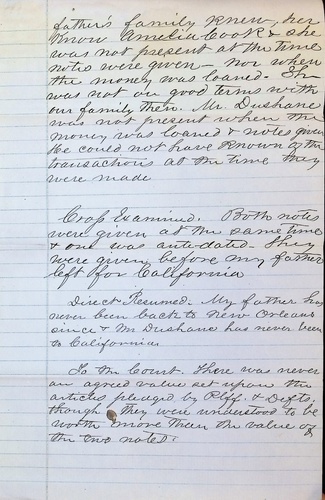 father's family knew, her
know Amelia Cook & she
was not present at the time
notes were given - nor when
the money was loaned. She
was not on good terms with
our family then. Mr. Dushane
was not present when the
money was loaned & notes given
He could not have known of the
transactions at the time they
were made
Cross Examined. Both notes
were given at the same time
& one was antedated. They
were given before my father
left for California
Direct Resumed. My father has
never been back to New Orleans
since & Mr Dushane has never been
to California.
To the Court. There was never
an agreed value set upon the
articles pledged by Plff. & Defts.
though they were understood to be
worth more than the value of
the two notes.